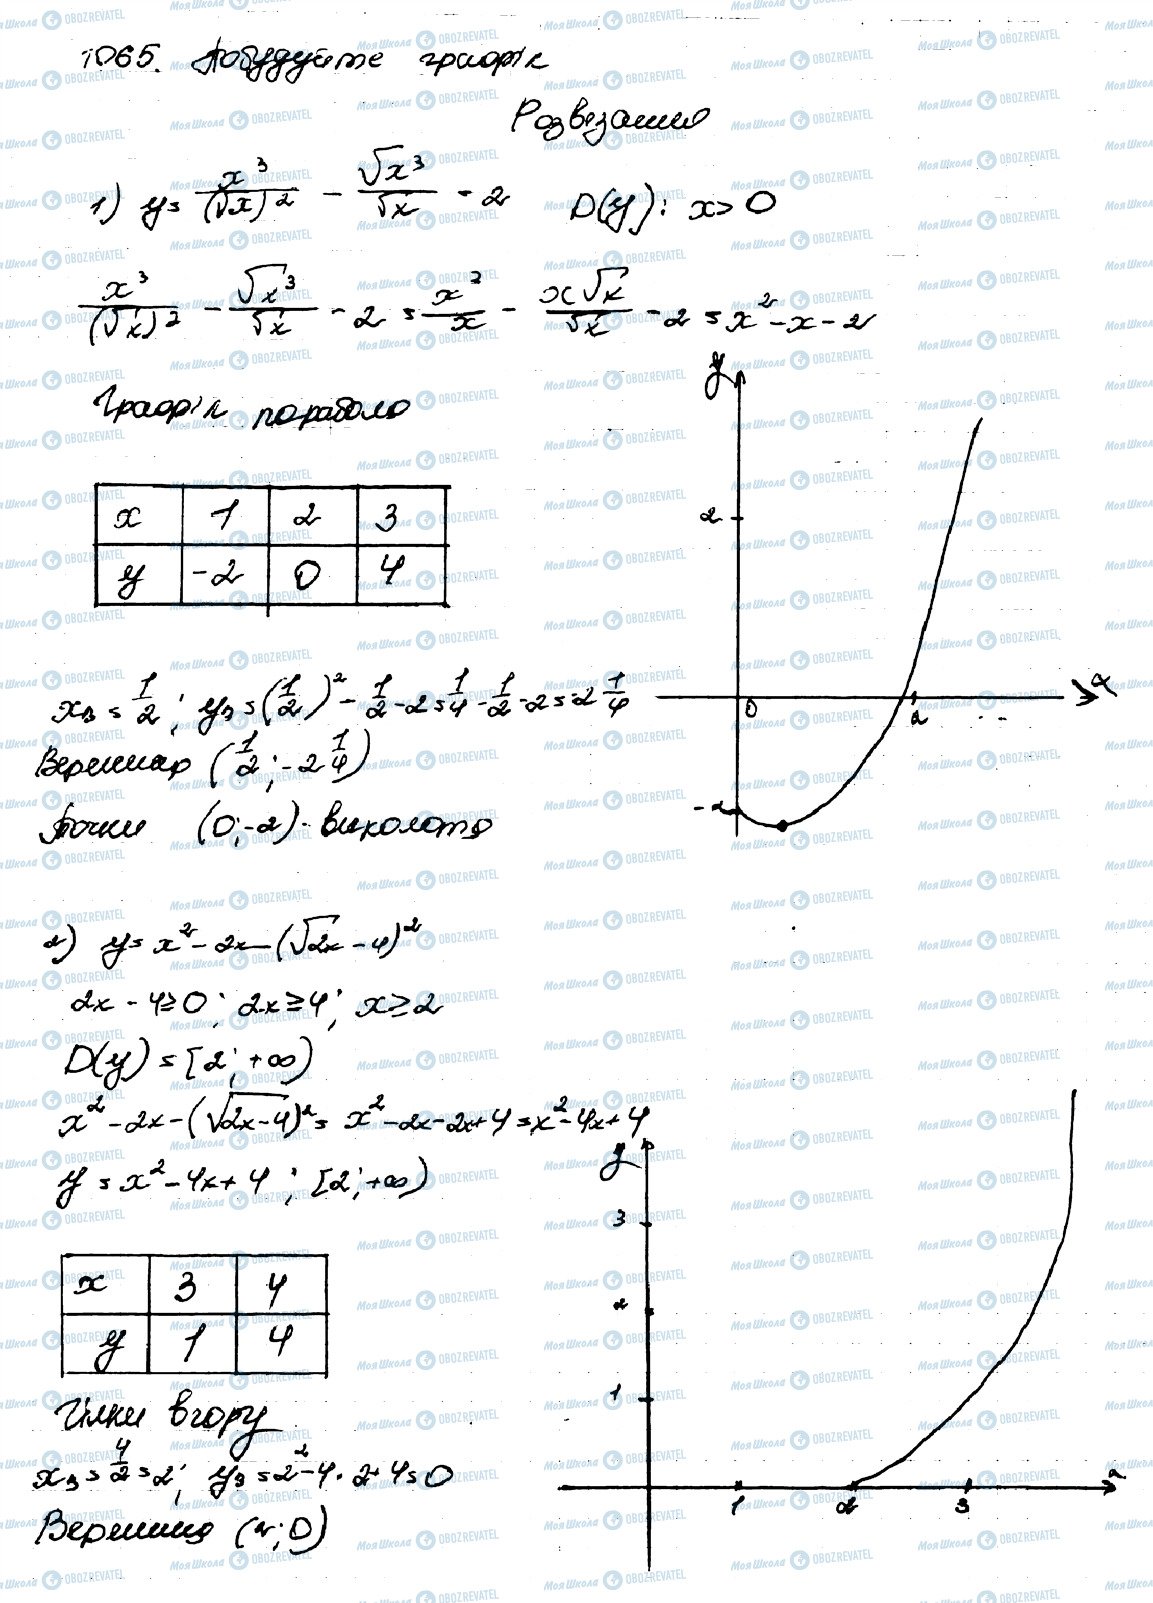 1065. Побудуйте графік
Розв'язання
1) y = x³/(√x)² - √x³/√x - 2   D(y): x > 0
x³/(√x)² - √x³/√x - 2 = x³/x - x√x/√x - 2 = x² - x - 2
Графік парабола
x 1 2 3
y -2 0 4
y
2
0 2 x
-2
xв = 1/2; yв = (1/2)² - 1/2 - 2 = 1/4 - 1/2 - 2 = -2 1/4
Вершина (1/2; -2 1/4)
Точки (0; -2) - виколота
2) y = x² - 2x - (√2x - 4)²
2x - 4 ≥ 0; 2x ≥ 4; x ≥ 2
D(y) = [2; +∞)
x² - 2x - (√2x-4)² = x² - 2x - 2x + 4 = x² - 4x + 4
y = x² - 4x + 4; [2; +∞)
x 3 4
y 1 4
y
3
2
1
1 2 3
Гілки вгору
xв = 4/2 = 2; yв = 2² - 4·2 + 4 = 0
Вершина (2; 0)
Моя Школа OBOZREVATEL